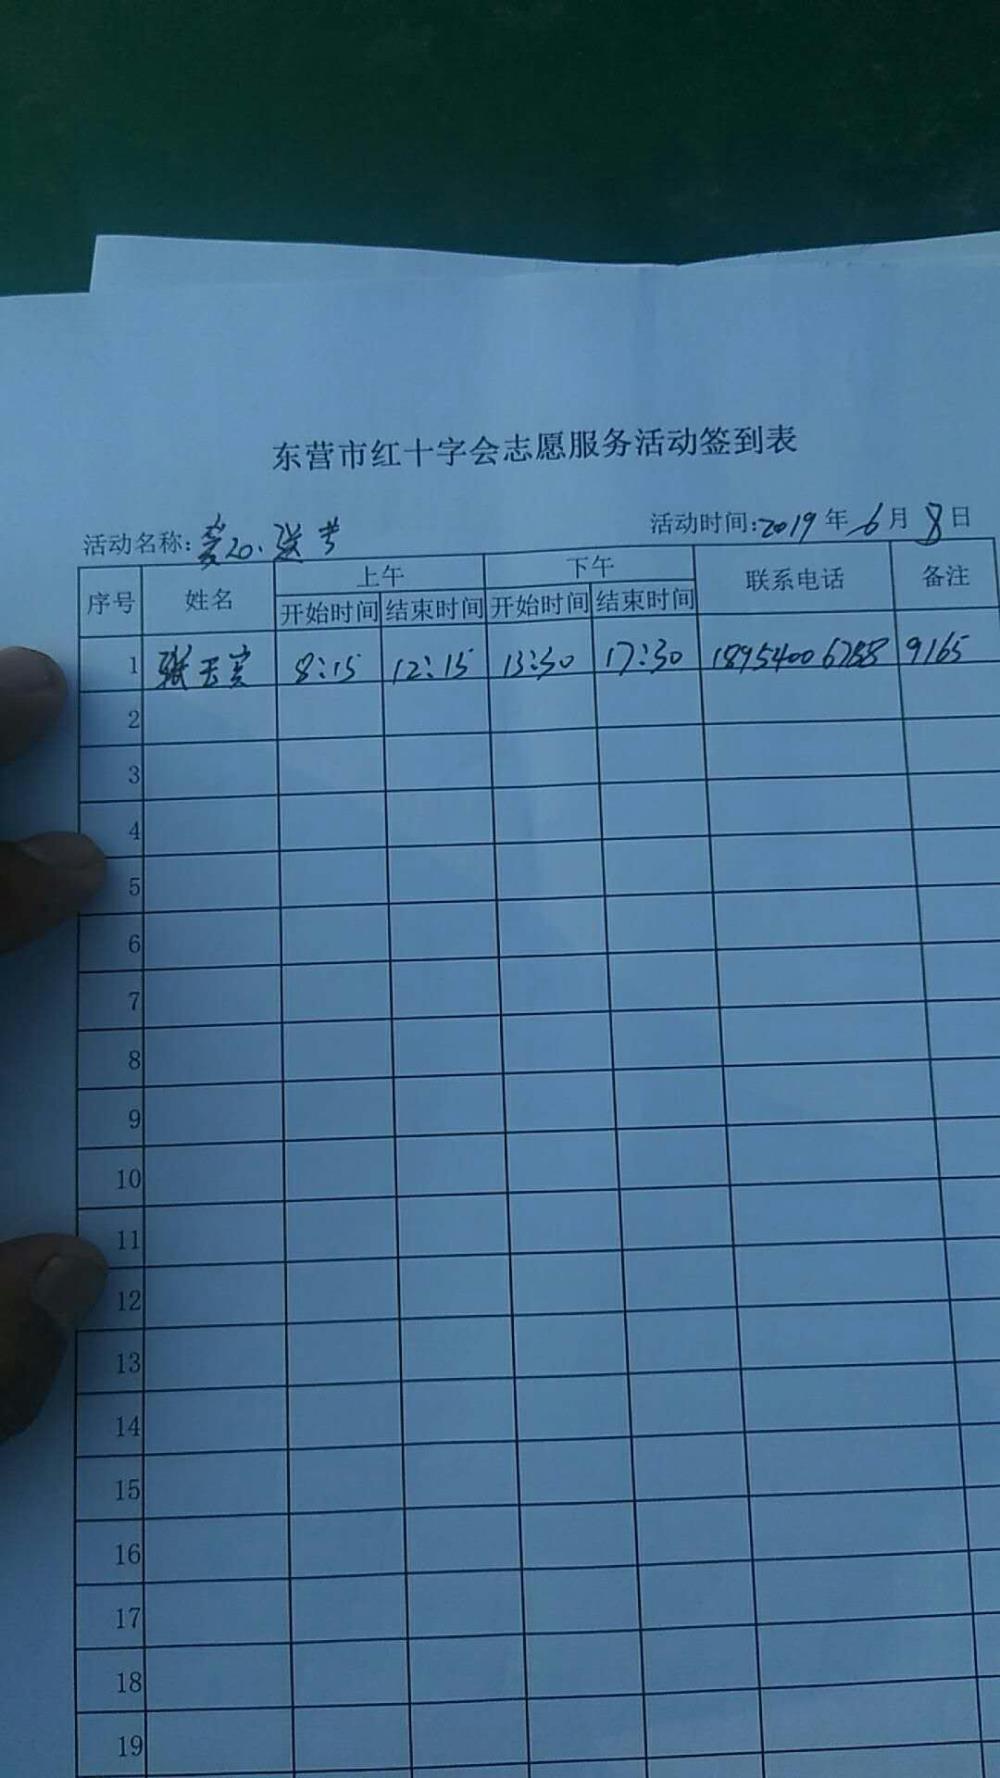 东营市红十字会志愿服务活动签到表
活动名称: 活动时间:2019年6月8日
序号 姓名 上午 下午 联系电话 备注
开始时间 结束时间 开始时间 结束时间
1 张玉 8:15 12:15 13:30 17:30 18954006788 9165
2
3
4
5
6
7
8
9
10
11
12
13
14
15
16
17
18
19